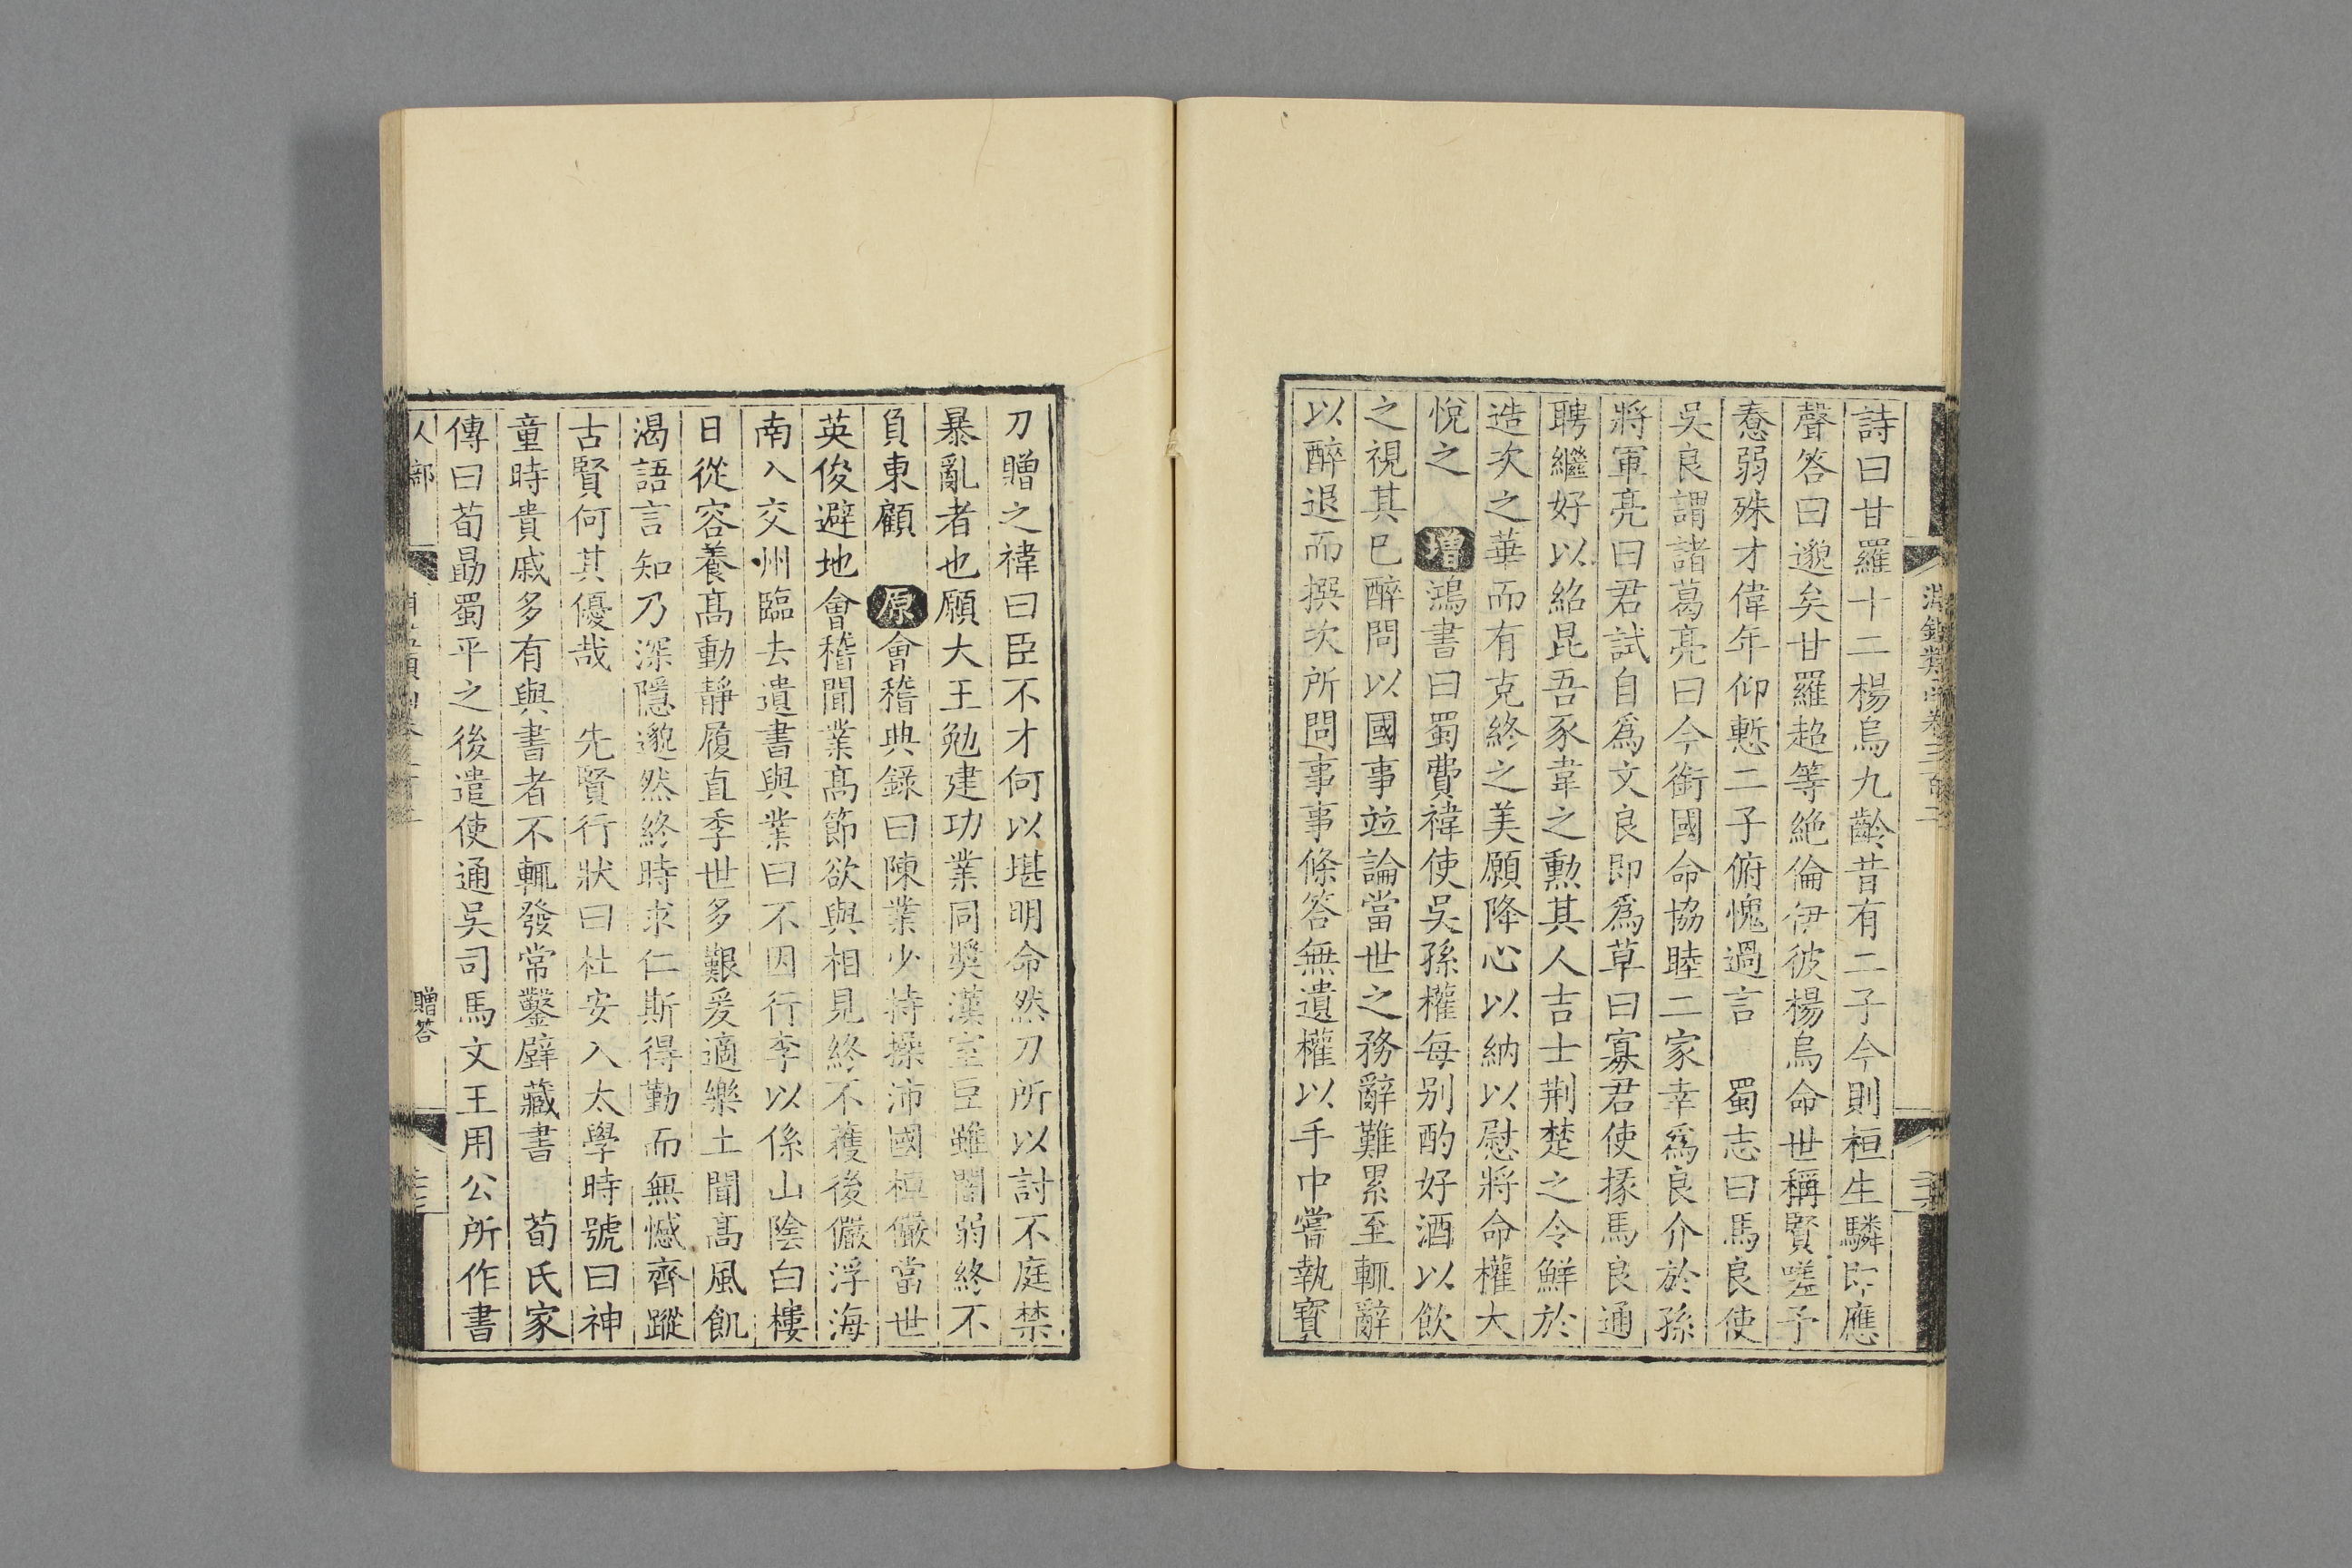 詩曰甘羅十二楊烏九齡昔有二子今則桓生驎即應
聲答曰邈矣甘羅超等絶倫伊彼楊烏命世稱賢嗟予
惷弱殊才偉年仰慙二子俯愧過言　蜀志曰馬良使
吳良謂諸葛亮曰今銜國命協睦二家幸爲良介於孫
將軍亮曰君試自爲文良即爲草曰寡君使掾馬良通
聘繼好以紹昆吾豕韋之勲其人吉士荆楚之令鮮於
造次之華而有克終之美願降心以納以慰將命權大
悅之　增鴻書曰蜀費禕使吳孫權每别酌好酒以飲
之視其巳醉問以國事竝論當世之務辭難累至輒辭
以醉退而撰次所問事事條答無遺權以手中嘗執寶
刀贈之禕曰臣不才何以堪明命然刀所以討不庭禁
暴亂者也願大王勉建功業同奬漢室臣雖闇弱終不
負東顧　原會稽典錄曰陳業少持操沛國桓儼當世
英俊避地會稽聞業髙節欲與相見終不獲後儼浮海
南入交州臨去遺書與業曰不因行李以係山陰白樓
日從容養髙動靜履直季世多艱爰適樂土聞髙風飢
渴語言知乃深隱邈然終時求仁斯得勤而無憾齊蹤
古賢何其優哉　先賢行狀曰杜安入太學時號曰神
童時貴戚多有與書者不輒發常鑿壁藏書　荀氏家
傳曰荀勗蜀平之後遣使通吳司馬文王用公所作書
人部
贈答